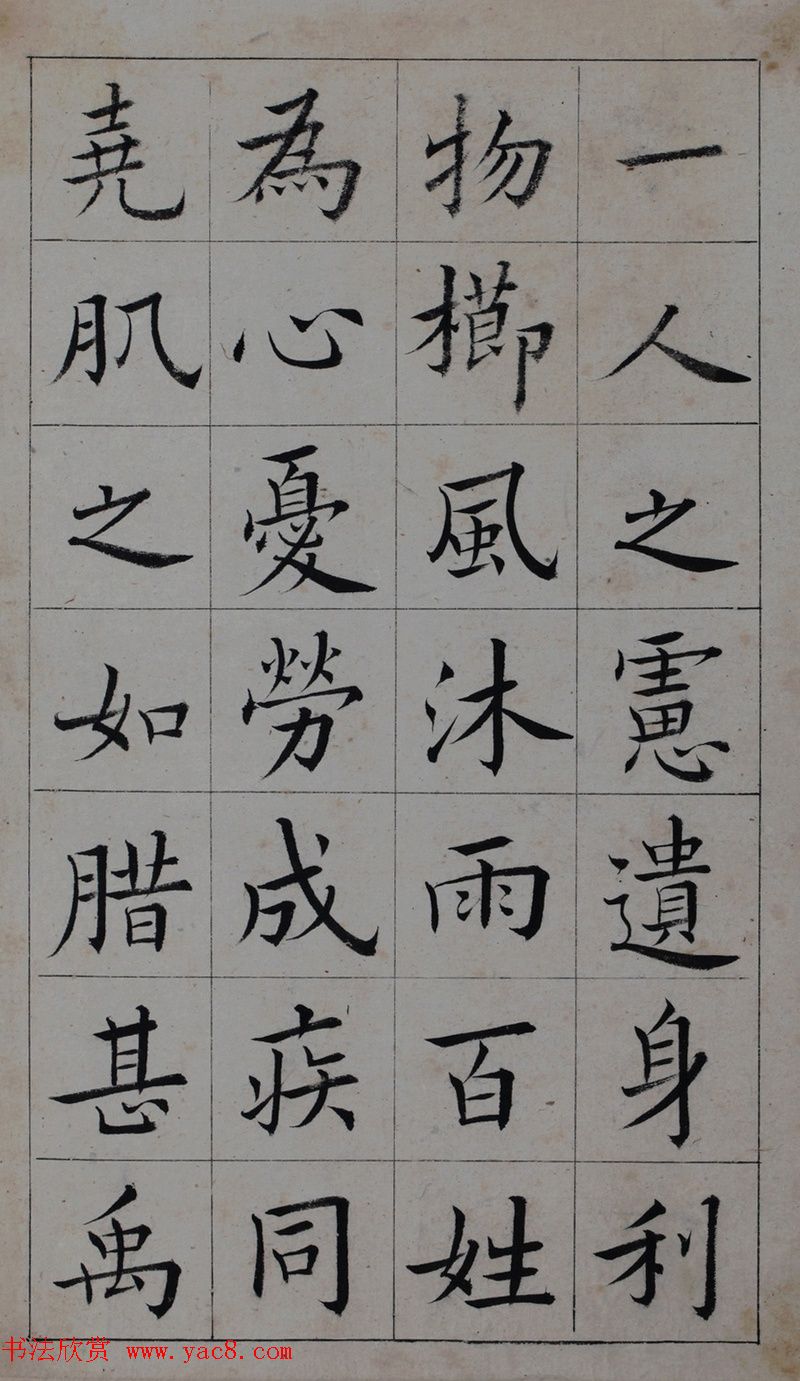 一人之慮遺身利
物櫛風沐雨百姓
為心憂勞成疾同
堯肌之如腊甚禹
书法欣赏 www.yac8.com